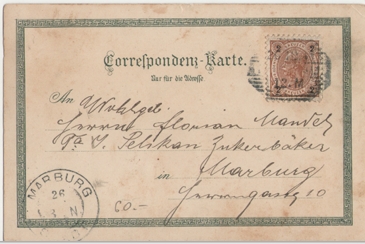 Correspondenz-Karte.
Nur für die Adresse
An Wohlgeb.
Herrn Florian Mandl
Pa S. Pelikan Zukerbäker
in Marburg
Herrengasse 10
MARBURG
26
60.-